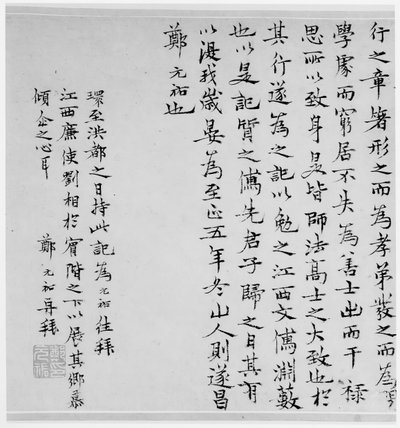 行之章著形之而為孝弟發之而為問
學處而窮居不失為善士出而干祿
思所以致身是皆師法高士之大致也於
其行遂為之記以勉之江西文儒淵藪
也以是記質之儒先君子歸之日其有
以淑我歲晏為至正五年冬山人則遂昌
鄭元祐也
環至洪都之日持此記為元祐往拜
江西廉使劉相於賓階之下以展其鄉慕
傾企之心耳 鄭元祐再拜